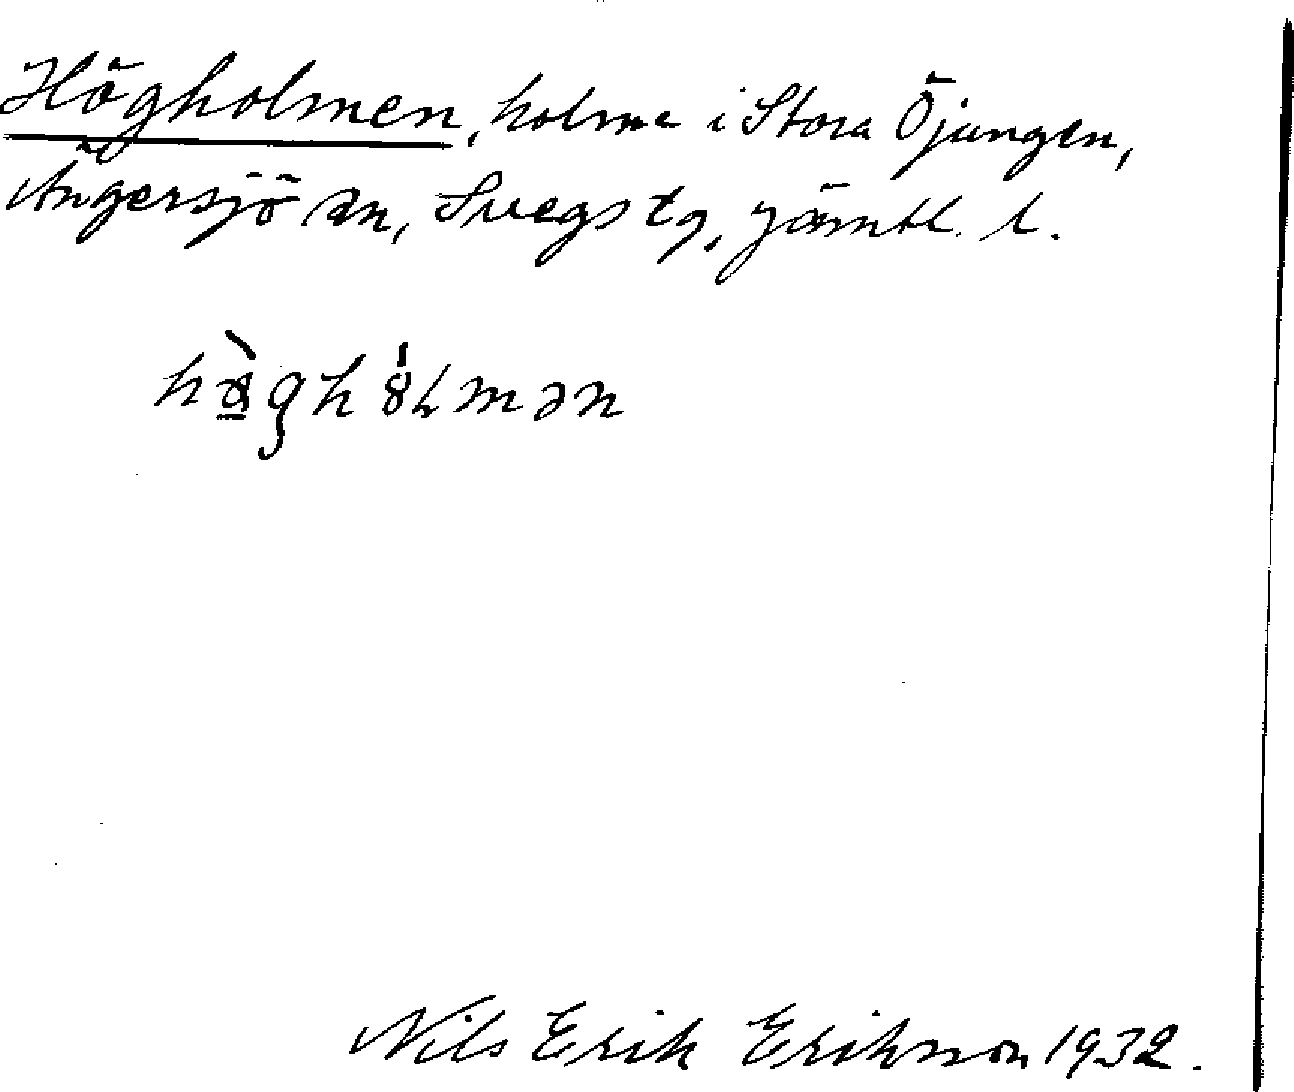 Högholmen, holme i Stora Öjungen,
Ängersjö sn, Svegs tg, Jämtl. l.
Nils Erik Erikson 1932.